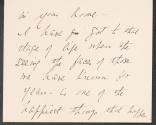 in your home -
I have got to that
stage of life when the
seeing the faces of those
we have known for
years - is one of the
happiest things that happen